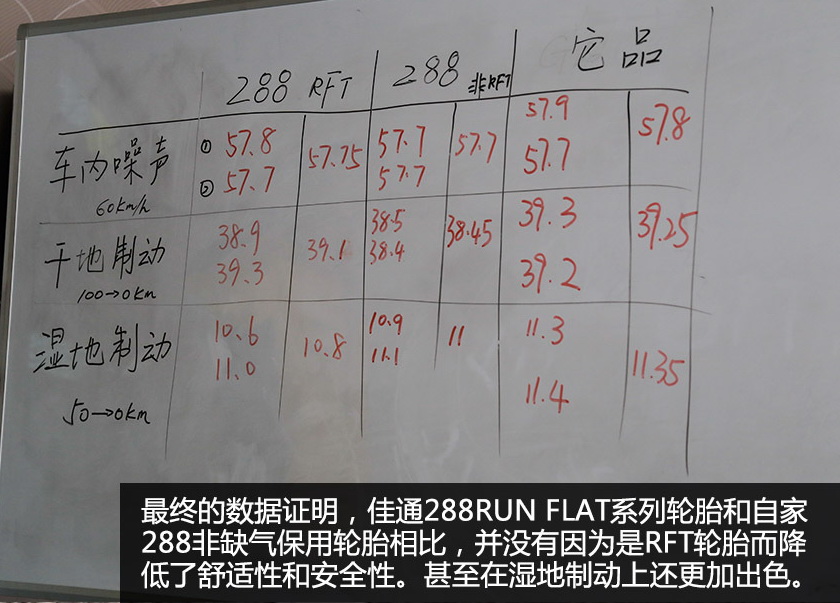 288 RFT 288 非RFT 它品
车内噪声 ① 57.8 57.75 57.7 57.7 57.9 57.8
60km/h ② 57.7 57.7 57.7
干地制动 38.9 39.1 38.5 38.45 39.3 39.25
100→0km 39.3 38.4 39.2
湿地制动 10.6 10.8 10.9 11 11.3 11.35
50→0km 11.0 11.1 11.4
最终的数据证明，佳通288RUN FLAT系列轮胎和自家
288非缺气保用轮胎相比，并没有因为是RFT轮胎而降
低了舒适性和安全性。甚至在湿地制动上还更加出色。